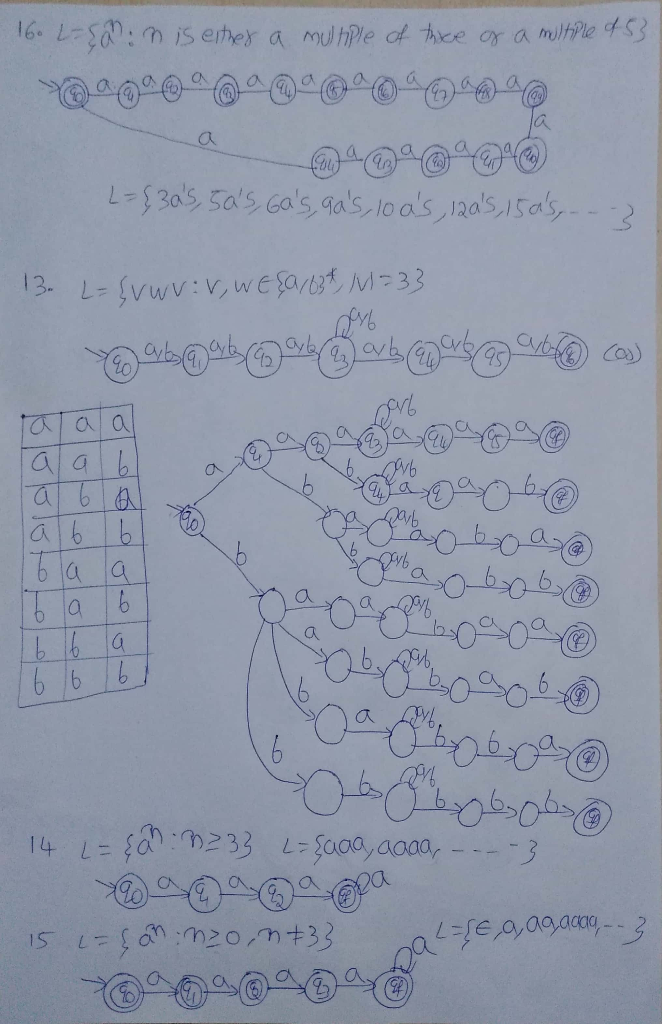 16. L={aⁿ: n is either a multiple of three or a multiple of 5}
q0 a q1 a q2 a q3 a q4 a q5 a q6 a q7 a q8 a q9
a a
q14 a q13 a q12 a q11 a q10
L={3a's, 5a's, 6a's, 9a's, 10a's, 12a's, 15a's, ----}
13. L={vwv: v,w∈{a,b}*, |v|=3}
a,b
q0 a,b q1 a,b q2 a,b q3 a,b q4 a,b q5 a,b q6 (or)
a a a
a a b
a b a
a b b
b a a
b a b
b b a
b b b
a,b
q0 a q1 a q2 a q3 a q4 a q5 a qf
b q4 a,b a q a b qf
b a a,b a b a qf
b a,b a b b qf
b a a a,b b a a qf
a b a,b b a b qf
b a a,b b b a qf
b b a,b b b b qf
14 L={aⁿ: n≥3} L={aaa, aaaa, -----}
q0 a q1 a q2 a qf a
15 L={aⁿ: n≥0, n≠3} L={∈, a, aa, aaaa, --}
q0 a q1 a q2 a q3 a qf a